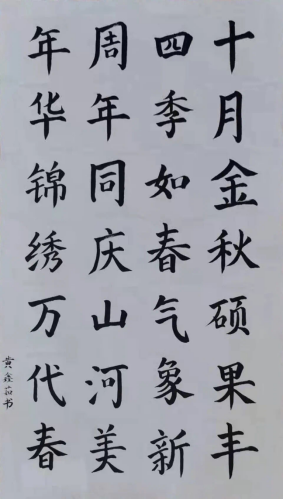 十月金秋硕果丰
四季如春气象新
周年同庆山河美
年华锦绣万代春
黄鑫茹书